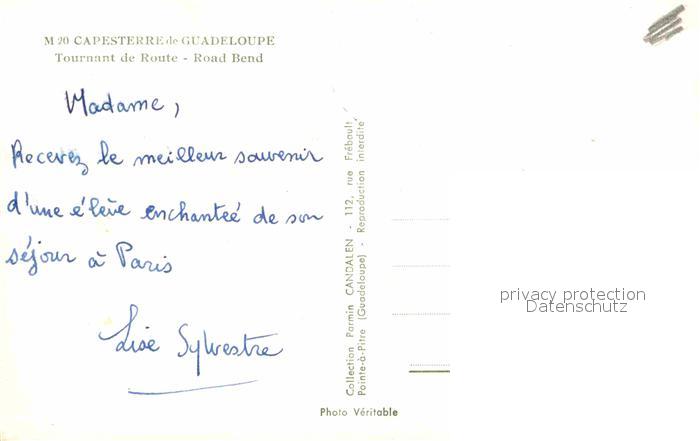 M 20 CAPESTERRE de GUADELOUPE
Tournant de Route - Road Bend
Madame,
Recevez le meilleur souvenir
d'une élève enchanteé de son
séjour à Paris
Lise Sylvestre
Collection Parmin CANDALEN - 112, rue Frébault
Pointe-à-Pitre (Guadeloupe) - Reproduction interdite
Photo Véritable
privacy protection
Datenschutz